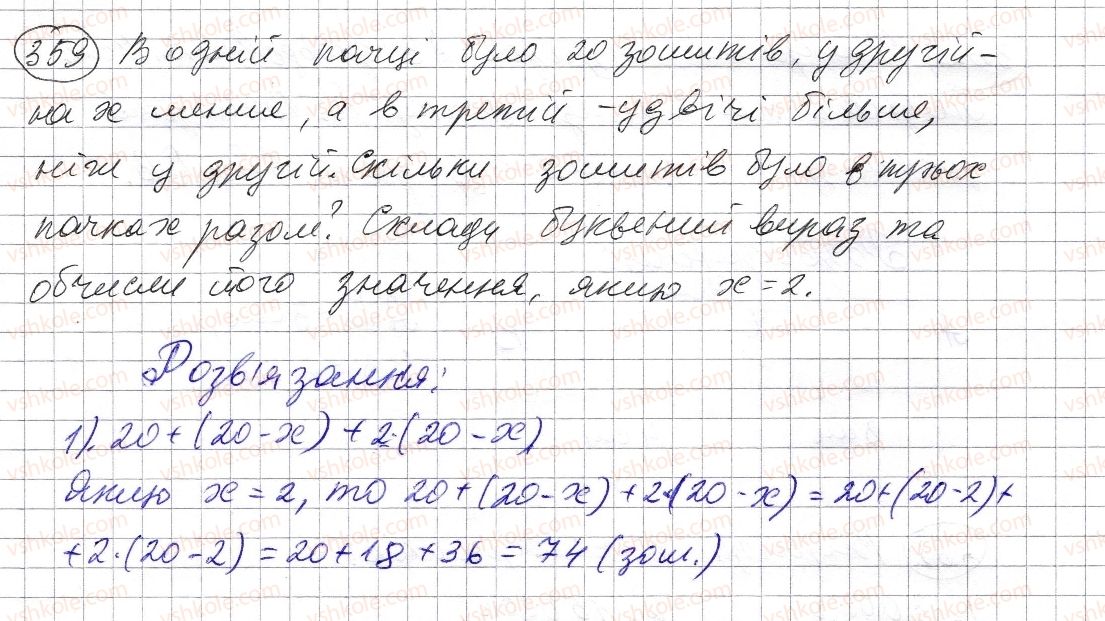 359 В одній пачці було 20 зошитів, у другій -
на x менше, а в третій - удвічі більше,
ніж у другій. Скільки зошитів було в трьох
пачках разом? Склади буквений вираз та
обчисли його значення, якщо x = 2.
Розв'язання:
1). 20 + (20 - x) + 2·(20 - x)
Якщо x = 2, то 20 + (20 - x) + 2·(20 - x) = 20 + (20 - 2) +
+ 2·(20 - 2) = 20 + 18 + 36 = 74 (зош.)